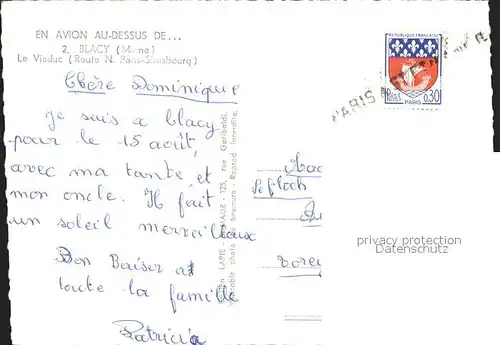 EN AVION AU-DESSUS DE...
2. BLACY (Marne)
Le Viaduc (Route N. Paris-Strasbourg)
Chère Dominique
Je suis a blacy
pour le 15 août,
avec ma tante et
mon oncle. Il fait
un soleil merveilleux
Bon Baiser a
toute la famille
Patricia
LAPIE 125, rue Garibaldi,
Véritable photo au bromure - Reprod. interdite.
REPUBLIQUE FRANÇAISE
POSTES 0,30
PARIS
PARIS
Le floch
privacy protection
Datenschutz